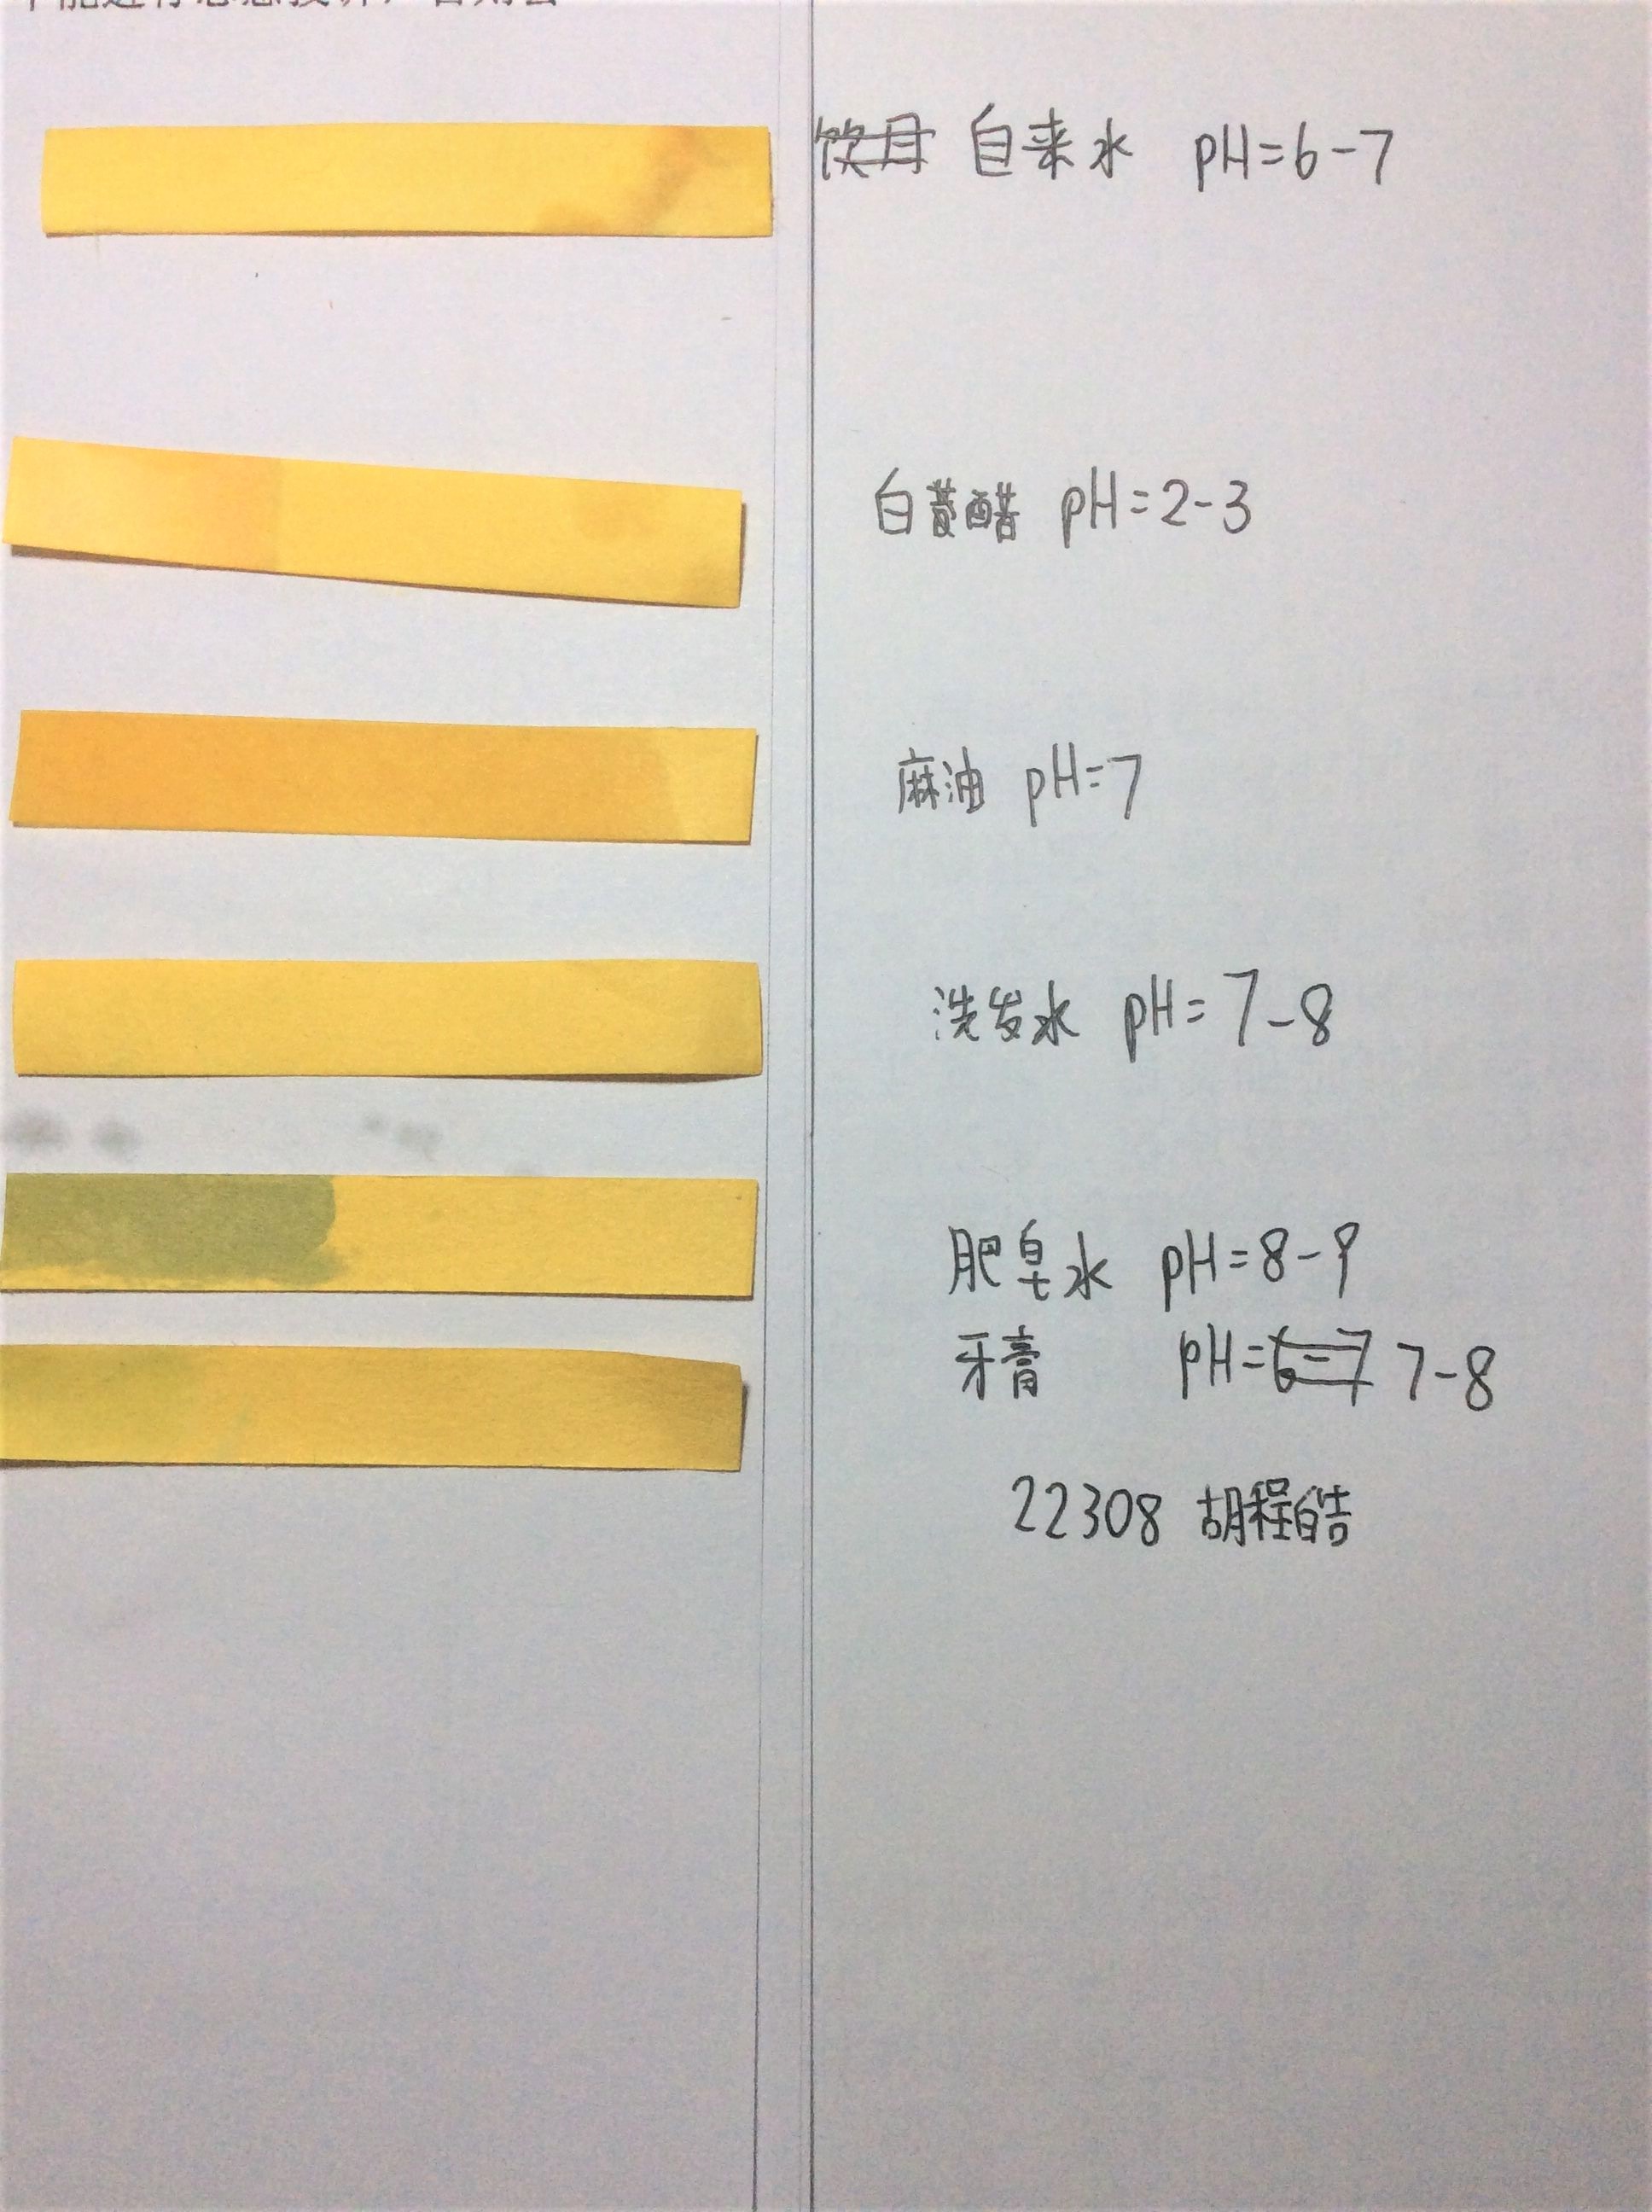 自来水 pH=6-7
白醋 pH=2-3
麻油 pH=7
洗发水 pH=7-8
肥皂水 pH=8-9
牙膏 pH=6-7 7-8
22308 胡程皓